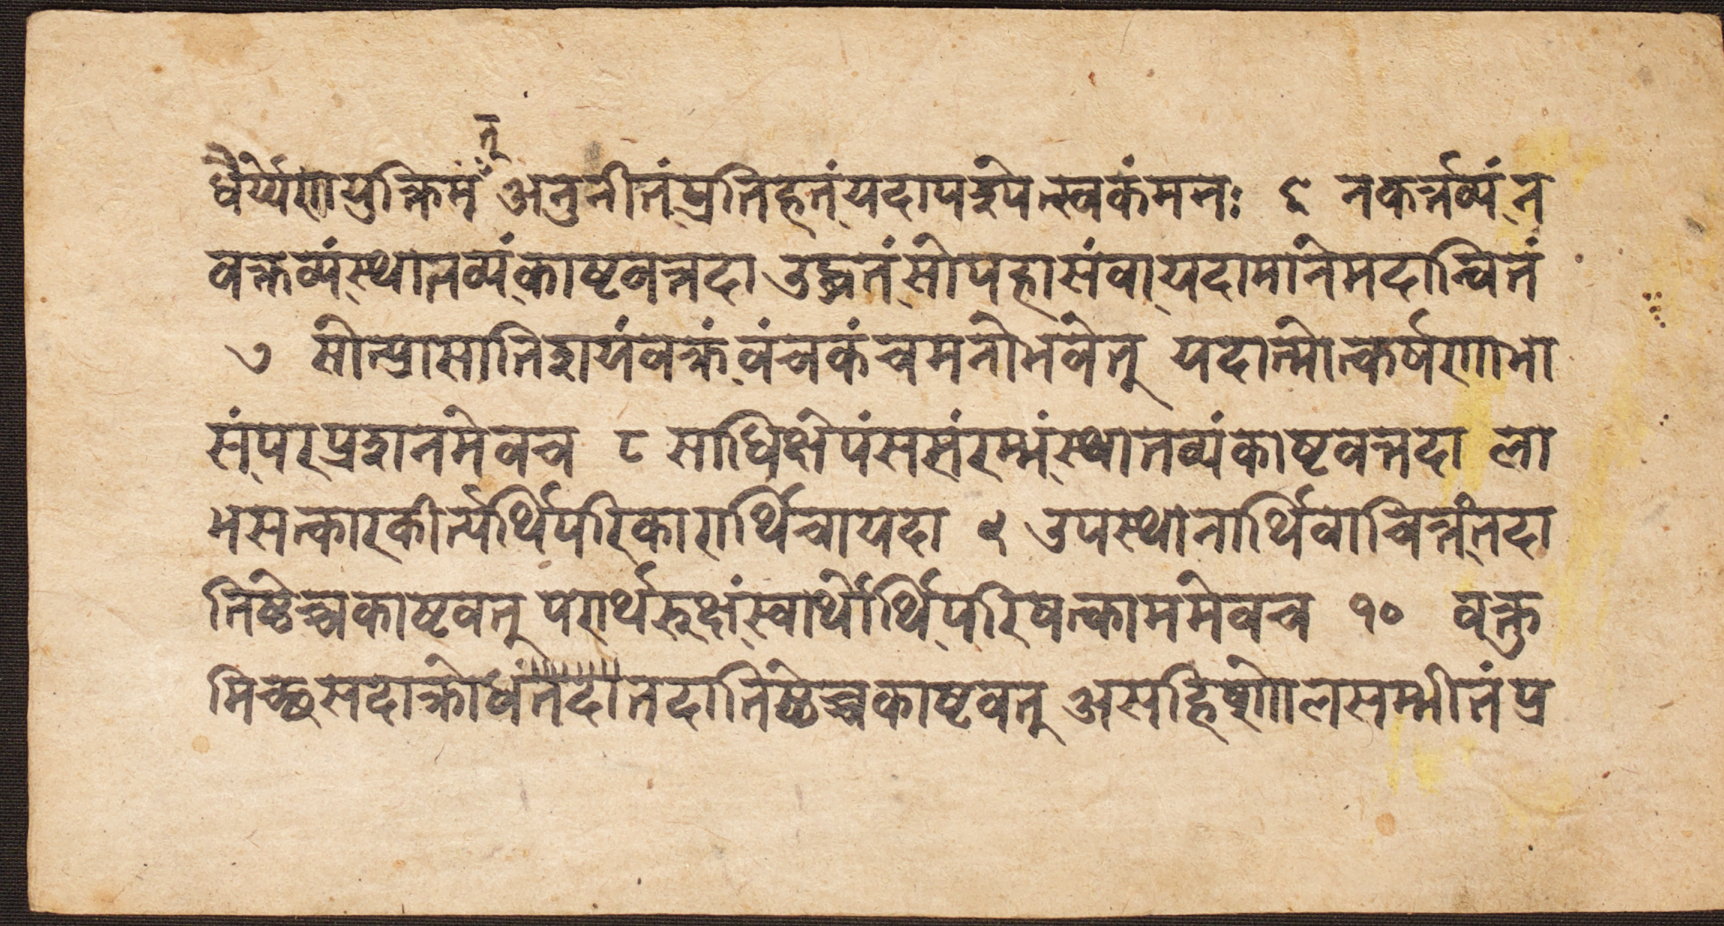 तु
धैर्य्येणयुक्तिमं अनुनीतंप्रतिहतंयदापश्येत्स्वकंमनः ६ नकर्त्तव्यंन
वक्तव्यंस्थातव्यंकाष्टवत्तदा उद्धतंसोपहासंवायदामानमदान्वितं
७ सोत्प्रासातिशयंवक्रंवंचकंचमनोभवेत् यदात्मोत्कर्षणाभा
संपरप्रशानमेवच ८ साधिक्षेपंससंरम्भंस्थातव्यंकाष्टवत्तदा ला
भसत्कारकीर्त्यर्थिपरिकारार्थिचायदा ९ उपस्थानार्थिवाचित्तंतदा
तिष्ठेच्चकाष्टवत् परार्थरुक्षंस्वार्थार्थिपरिषत्काममेवच १० वक्तु
मिच्छसदाक्रोधंतदातदातिष्ठेच्चकाष्टवत् असहिष्णोलसम्भीतंप्र